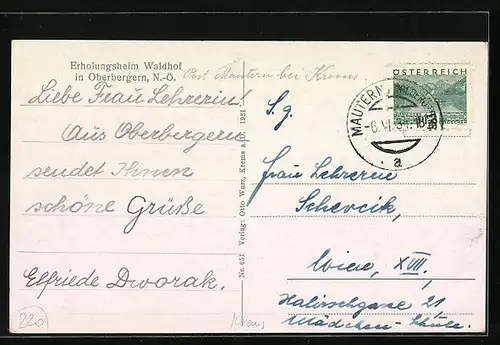 Erholungsheim Waldhof
in Oberbergern, N.-Ö.
Post Mautern bei Krems
Liebe Frau Lehrerin!
Aus Oberbergern
sendet Ihnen
schöne Grüße
Elfriede Dworak.
220
Krems
Nr. 651 Verlag: Otto Wurz, Krems a. 1931
ÖSTERREICH
MAUTERN
-6.VI.
a
S. g.
Frau Lehrerin
Schevcik,
Wien, XVII.
21
Mädchen-Schule.